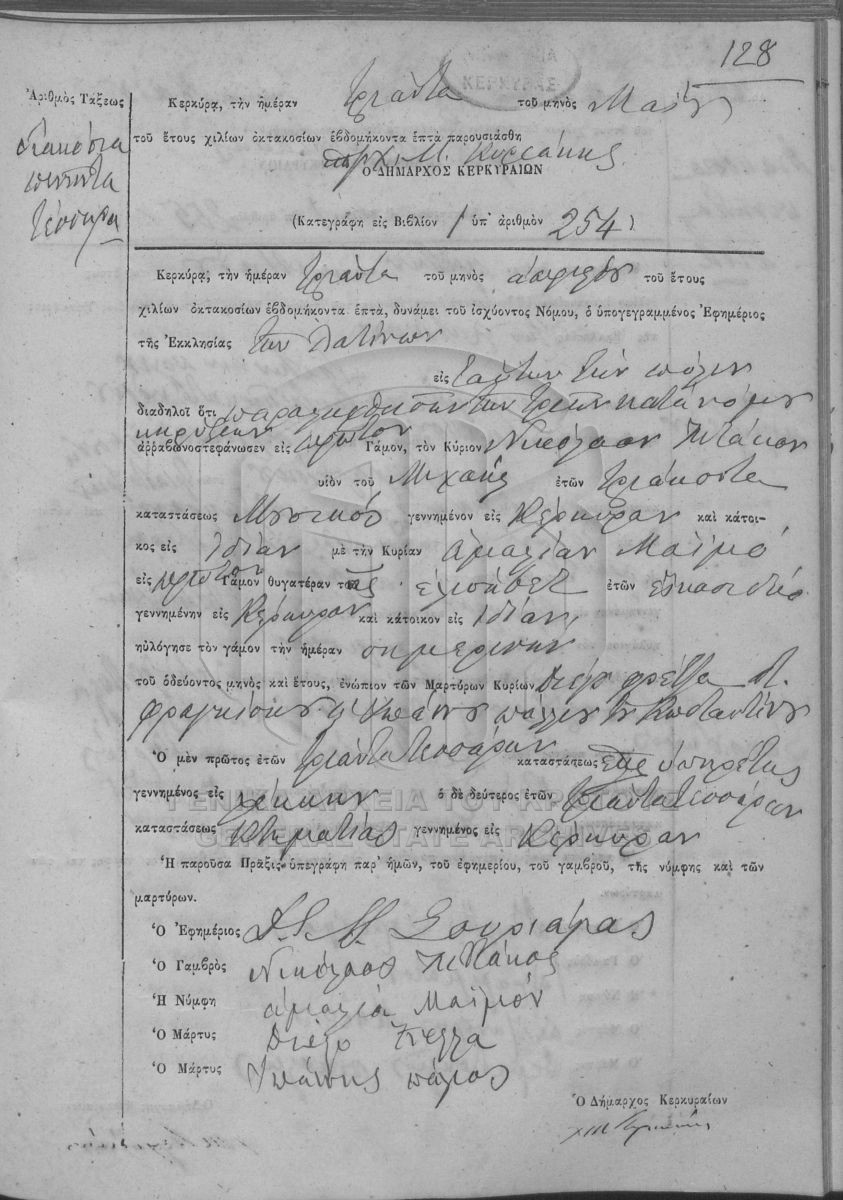 128
Ἀριθμὸς Τάξεως
διακόσια
πενῆντα
τέσσαρα
Κερκύρᾳ, τὴν ἡμέραν τριάντα τοῦ μηνὸς Μαΐου
τοῦ ἔτους χιλίων ὀκτακοσίων ἑβδομήκοντα ἑπτὰ παρουσιάσθη
Χ. Μ. Κυριάκης
Ο ΔΗΜΑΡΧΟΣ ΚΕΡΚΥΡΑΙΩΝ
(Κατεγράφη εἰς Βιβλίον 1 ὑπ' ἀριθμὸν 254)
Κερκύρᾳ, τὴν ἡμέραν τριάντα τοῦ μηνὸς ἀπριλίου τοῦ ἔτους
χιλίων ὀκτακοσίων ἑβδομήκοντα ἑπτά, δυνάμει τοῦ ἰσχύοντος Νόμου, ὁ ὑπογεγραμμένος Ἐφημέριος
τῆς Ἐκκλησίας τῶν Λατίνων
εἰς ταύτην τὴν πόλιν
διαδηλοῖ ὅτι τῶν τριῶν κατὰ νόμον
κηρύξεων
ἀρραβωνοστεφάνωσεν εἰς πρῶτον Γάμον, τὸν Κύριον Νικόλαον
υἱὸν τοῦ Μιχαήλ ἐτῶν τριάκοντα
καταστάσεως Μουσικός γεννημένον εἰς Κέρκυραν καὶ κάτοι-
κος εἰς Ἰδίαν μὲ τὴν Κυρίαν Ἀμαλίαν Μαϊμό
εἰς πρῶτον Γάμον θυγατέραν της Ἐλισάβετ ἐτῶν εἴκοσι δύο
γεννημένην εἰς Κέρκυραν καὶ κάτοικον εἰς Ἰδίαν
ηὐλόγησε τὸν γάμον τὴν ἡμέραν σημερινήν
τοῦ ὁδεύοντος μηνὸς καὶ ἔτους, ἐνώπιον τῶν Μαρτύρων Κυρίων
Φραγκίσκου Κωσταντίνου
Ὁ μὲν πρῶτος ἐτῶν τριάντα τεσσάρων καταστάσεως ὑπηρέτης
γεννημένος εἰς ὁ δὲ δεύτερος ἐτῶν τριάντα τεσσάρων
καταστάσεως Κτηματίας γεννημένος εἰς Κέρκυραν
Ἡ παροῦσα Πρᾶξις ὑπεγράφη παρ' ἡμῶν, τοῦ ἐφημερίου, τοῦ γαμβροῦ, τῆς νύμφης καὶ τῶν
μαρτύρων.
Ὁ Ἐφημέριος
Ὁ Γαμβρὸς Νικόλαος
Ἡ Νύμφη Ἀμαλία Μαϊμόν
Ὁ Μάρτυς
Ὁ Μάρτυς
Ὁ Δήμαρχος Κερκυραίων
ΓΕΝΙΚΑ ΑΡΧΕΙΑ ΤΟΥ ΚΡΑΤΟΥΣ
GENERAL STATE ARCHIVES
ΚΕΡΚΥΡΑΣ